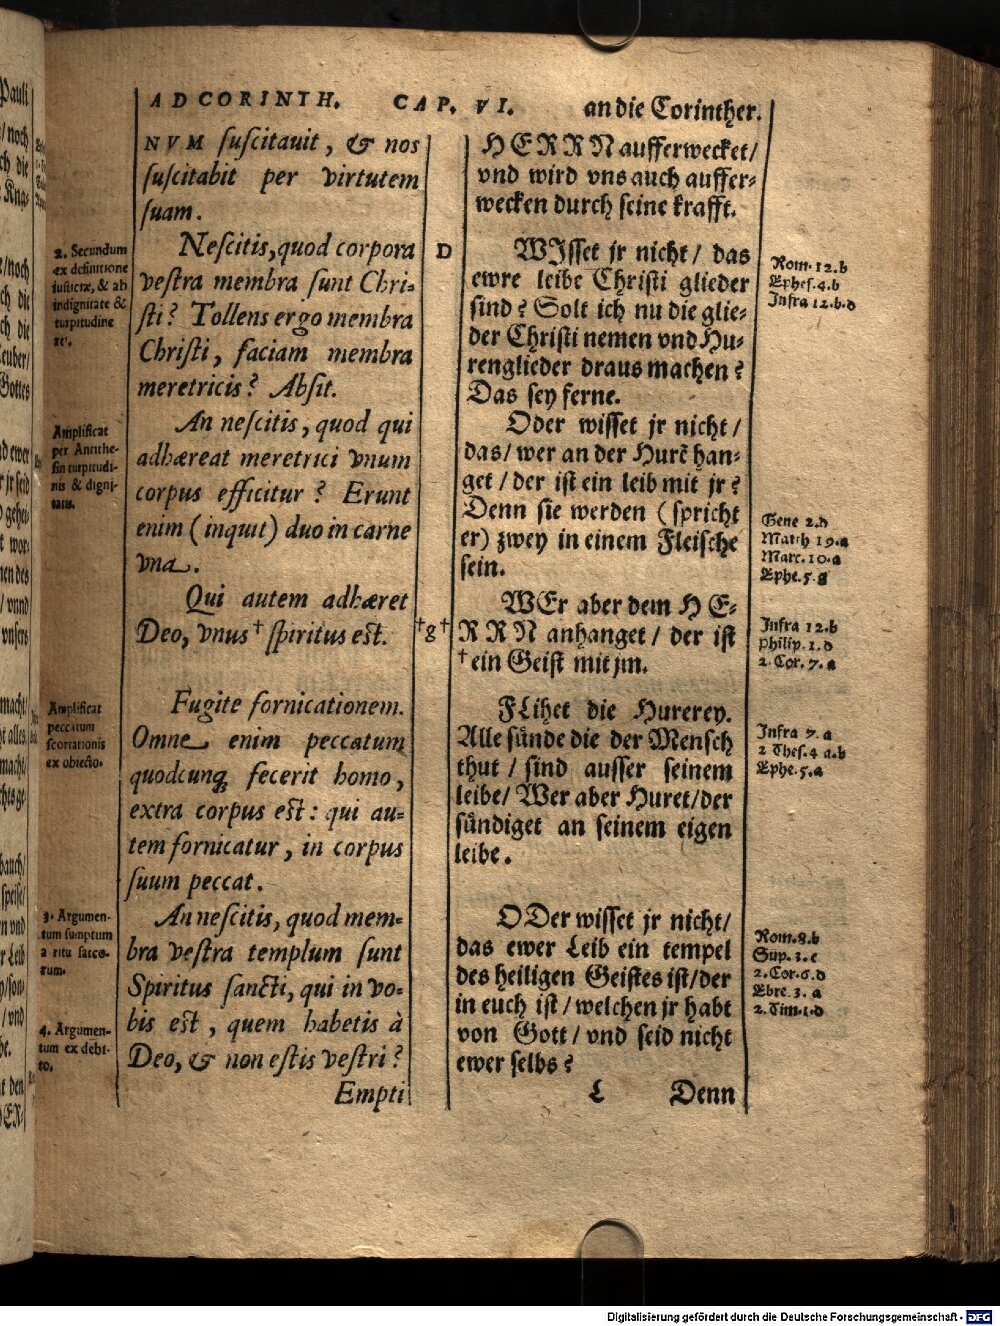 AD CORINTH. CAP. VI. an die Corinther.
NVM ſuſcitauit, & nos
ſuſcitabit per virtutem
ſuam.
Neſcitis, quod corpora
veſtra membra ſunt Chri-
ſti? Tollens ergo membra
Chriſti, faciam membra
meretricis? Abſit.
An neſcitis, quod qui
adhæreat meretrici vnum
corpus efficitur? Erunt
enim (inquit) duo in carne
vna.
Qui autem adhæret
Deo, vnus † ſpiritus est.
Fugite fornicationem.
Omne enim peccatum
quodcunq; fecerit homo,
extra corpus est: qui au-
tem fornicatur, in corpus
ſuum peccat.
An neſcitis, quod mem-
bra veſtra templum ſunt
Spiritus ſancti, qui in vo-
bis est, quem habetis à
Deo, & non eſtis veſtri?
Empti
2. Secundum
ex definitione
iuſticiæ, & ab
indignitate &
turpitudine
rei.
Amplificat
per Antithe-
ſin turpitudi-
nis & digni-
tatis.
Amplificat
peccatum
ſcortationis
ex obiecto.
3. Argumen-
tum ſumptum
a ritu ſacco-
rum.
4. Argumen-
tum ex debi-
to.
D
†g†
HERRN aufferwecket/
vnd wird vns auch auffer-
wecken durch ſeine krafft.
WIſſet jr nicht/ das
ewre leibe Chriſti glieder
ſind? Solt ich nu die glie-
der Chriſti nemen vnd Hu-
renglieder draus machen?
Das ſey ferne.
Oder wiſſet jr nicht/
das/ wer an der Hurẽ han-
get/ der iſt ein leib mit jr?
Denn ſie werden (ſpricht
er) zwey in einem Fleiſche
ſein.
WEr aber dem HE-
RRN anhanget/ der iſt
† ein Geiſt mit jm.
FLihet die Hurerey.
Alle ſünde die der Menſch
thut/ ſind auſſer ſeinem
leibe/ Wer aber Huret/ der
ſündiget an ſeinem eigen
leibe.
ODer wiſſet jr nicht/
das ewer Leib ein tempel
des heiligen Geiſtes iſt/ der
in euch iſt/ welchen jr habt
von Gott/ vnd ſeid nicht
ewer ſelbs?
L Denn
Rom. 12.b
Epheſ. 4.b
Infra 12.b.d
Gene 2.d
Matth 19.a
Marc. 10.a
Ephe. 5.g
Infra 12.b
Philip. 1.d
2. Cor. 7.a
Infra 7.a
2 Theſ. 4 a.b
Ephe. 5.a
Rom. 8.b
Sup. 3.c
2. Cor. 6.d
Ebre. 3. a
2. Tim. 1.d
Digitalisierung gefördert durch die Deutsche Forschungsgemeinschaft - DFG